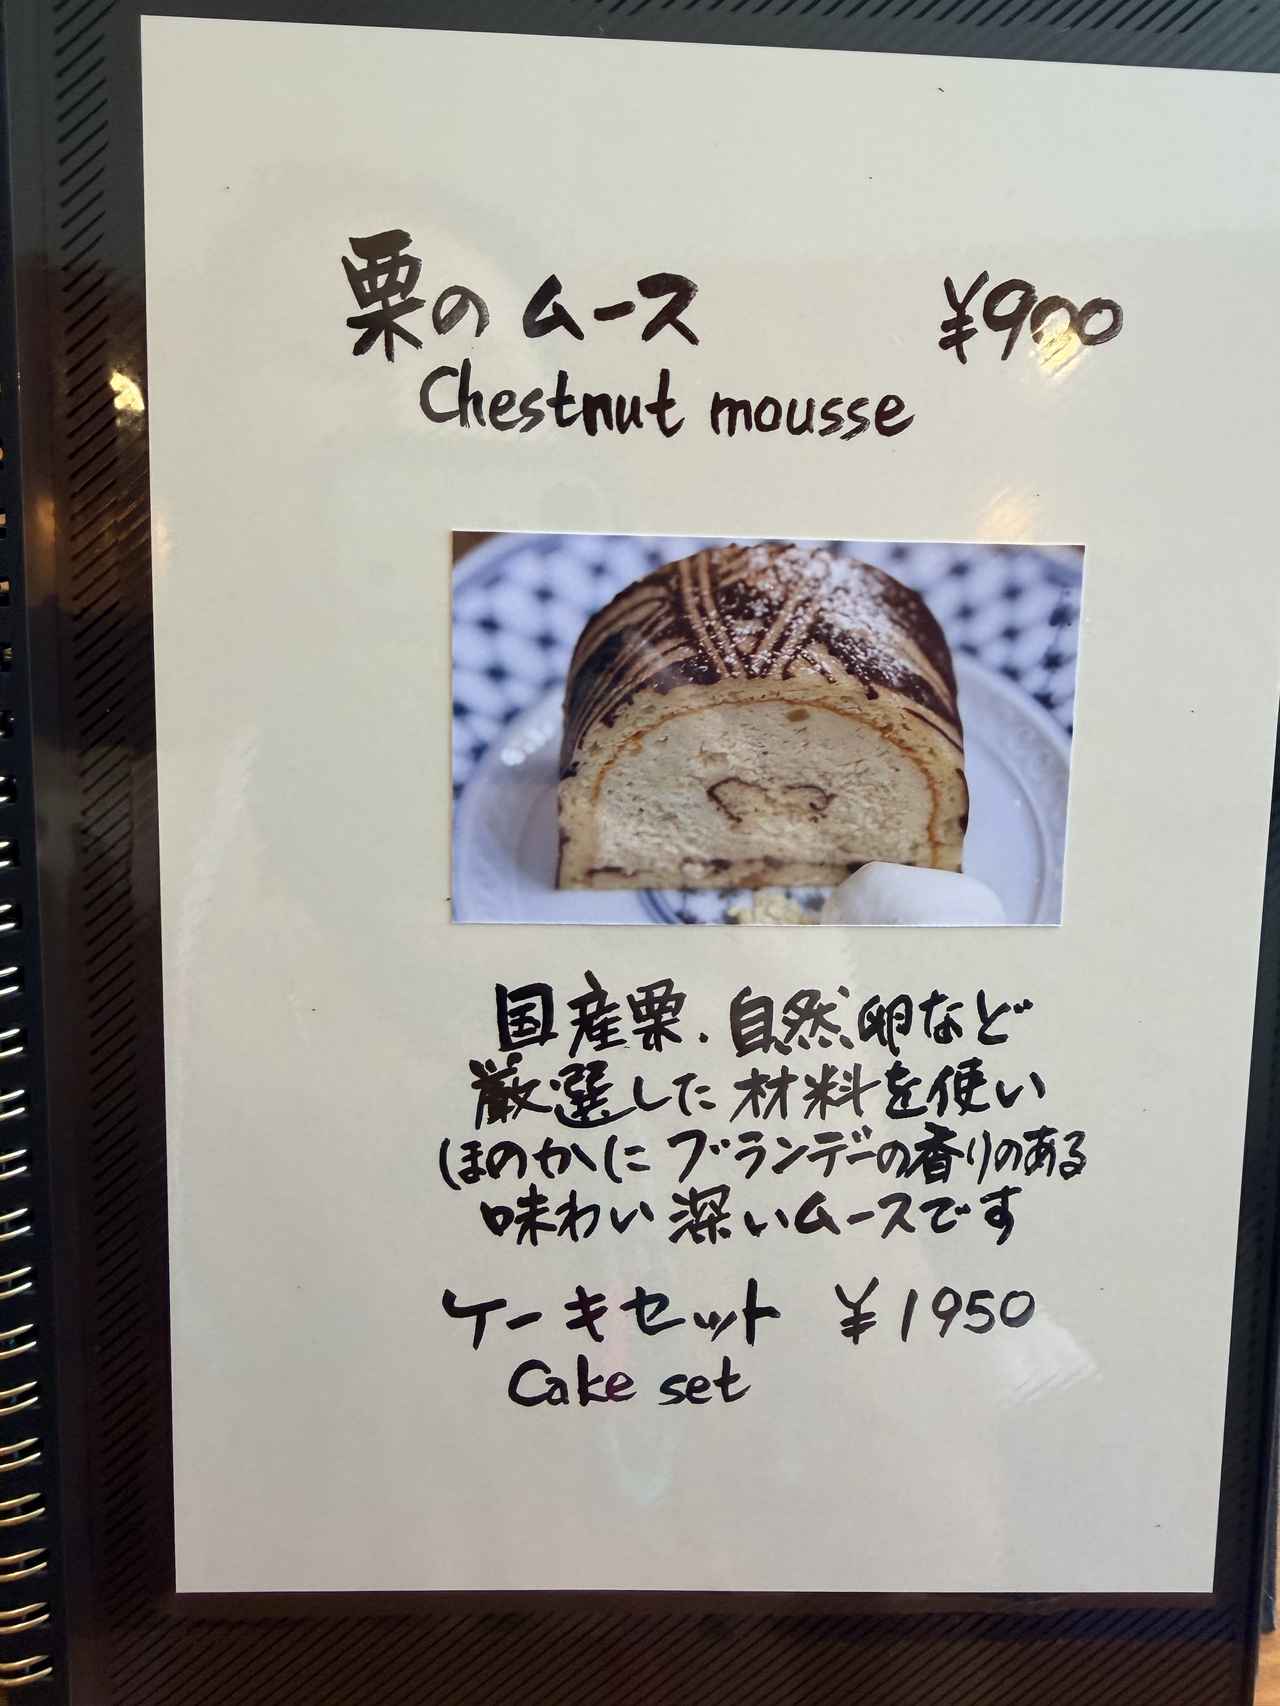 栗のムース ¥900
Chestnut mousse
国産栗、自然卵など
厳選した材料を使い
ほのかにブランデーの香りのある
味わい深いムースです
ケーキセット ¥1950
Cake set